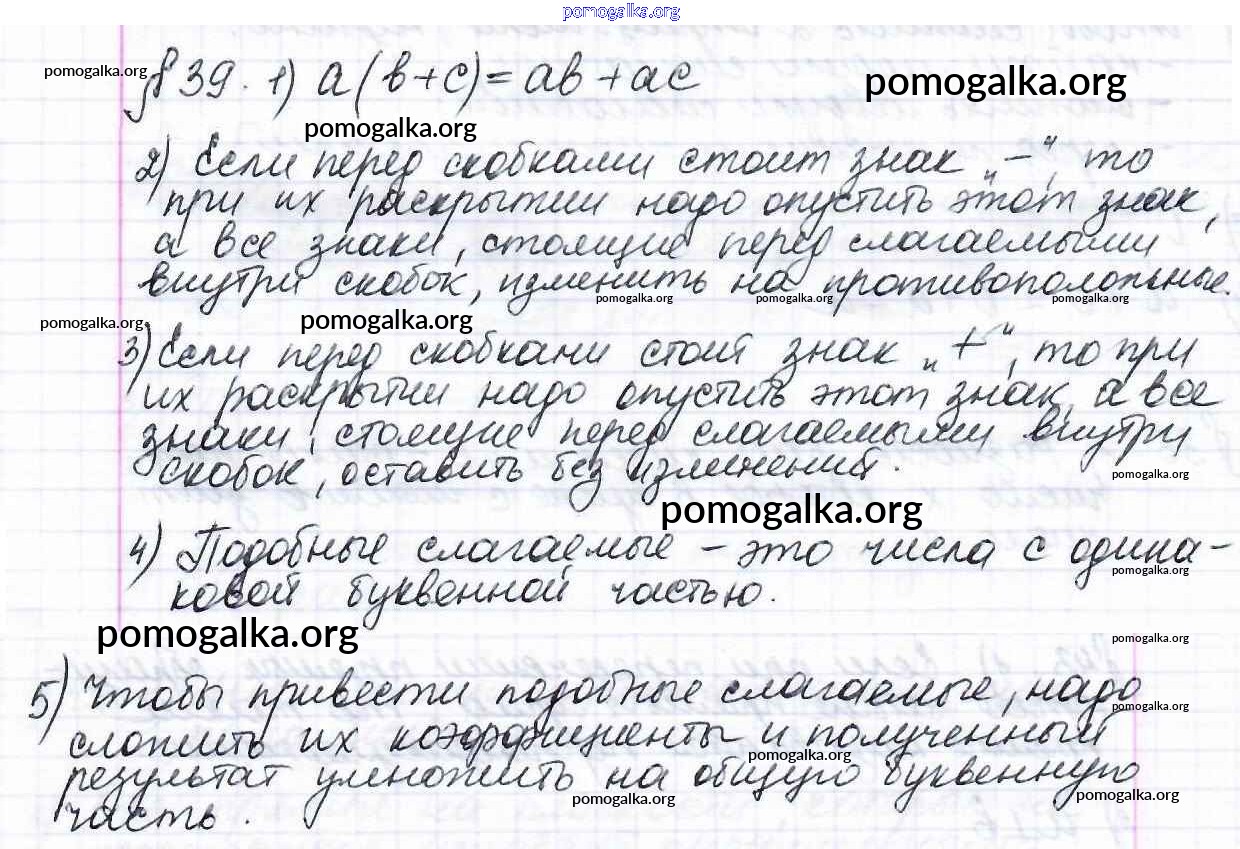 pomogalka.org
pomogalka.org § 39. 1) a(b+c)=ab+ac pomogalka.org
pomogalka.org
2) Если перед скобками стоит знак „–“, то
при их раскрытии надо опустить этот знак,
а все знаки, стоящие перед слагаемыми
внутри скобок, изменить на противоположные.
pomogalka.org pomogalka.org pomogalka.org
pomogalka.org pomogalka.org
3) Если перед скобками стоит знак „+“, то при
их раскрытии надо опустить этот знак, а все
знаки, стоящие перед слагаемыми внутри
скобок, оставить без изменений.
pomogalka.org
pomogalka.org
4) Подобные слагаемые – это числа с одина-
pomogalka.org
ковой буквенной частью.
pomogalka.org pomogalka.org
5) Чтобы привести подобные слагаемые, надо
pomogalka.org
сложить их коэффициенты и полученный
pomogalka.org
результат умножить на общую буквенную
pomogalka.org pomogalka.org
часть.